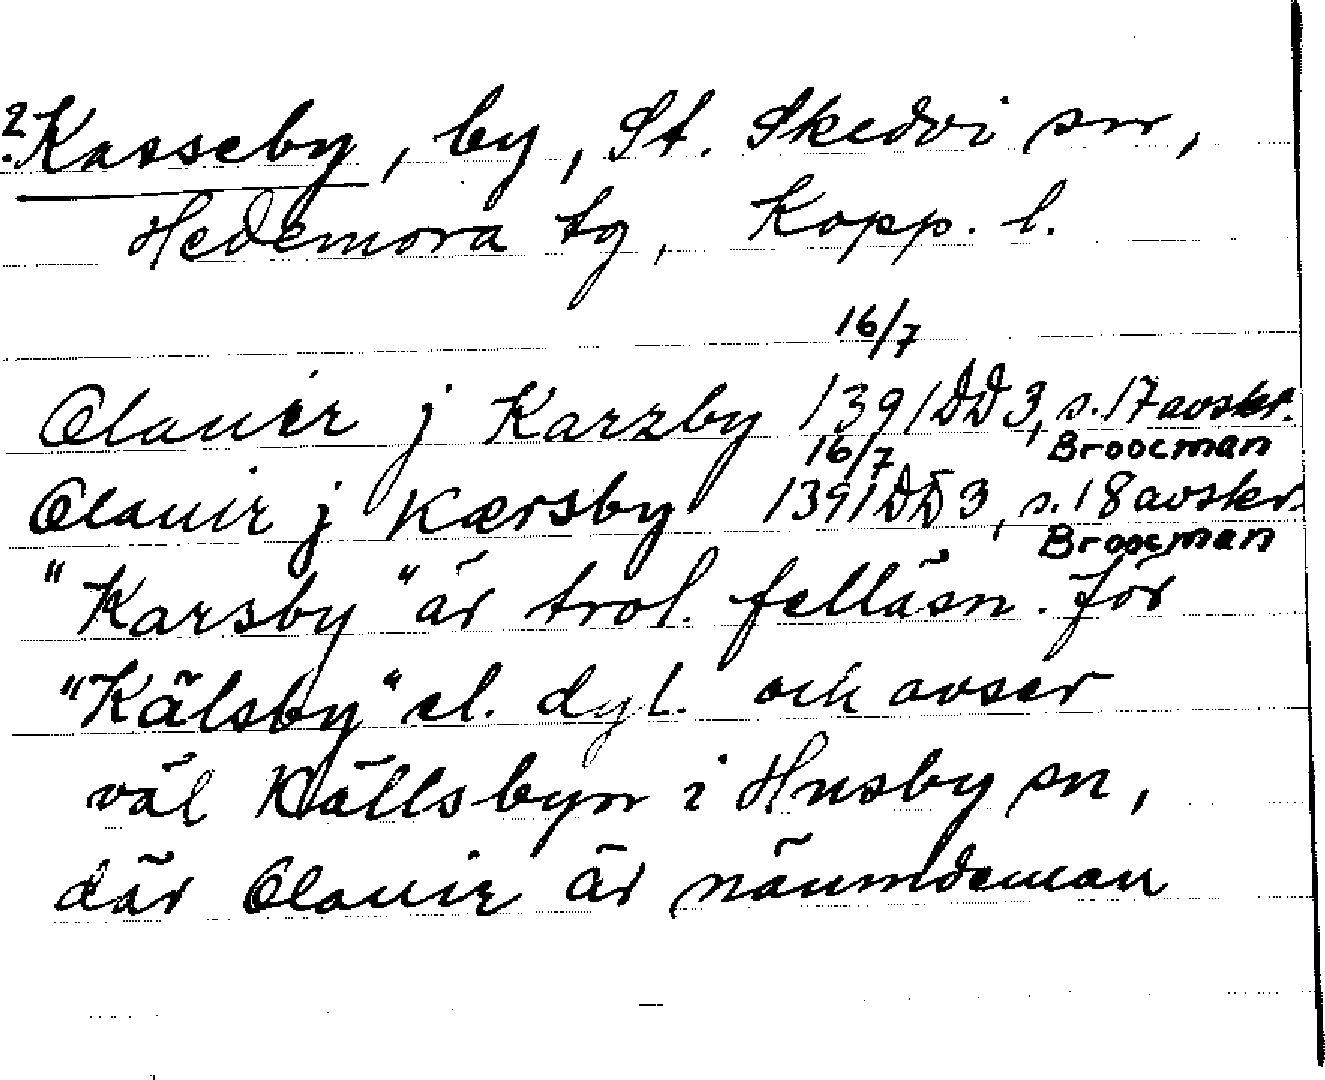 ? Kasseby, by, St. Skedvi sn,
Hedemora tg, Kopp. l.
16/7
Olauir j Karzby 1391 DD 3, s. 17 avskr.
Broocman
16/7
Olauir j Kærsby 1391 DD 3, s. 18 avskr.
Broocman
"Karsby" är trol. felläsn. för
"Kälsby" el. dyl. och avser
väl Källsbyn i Husby sn,
där Olauir är nämndeman